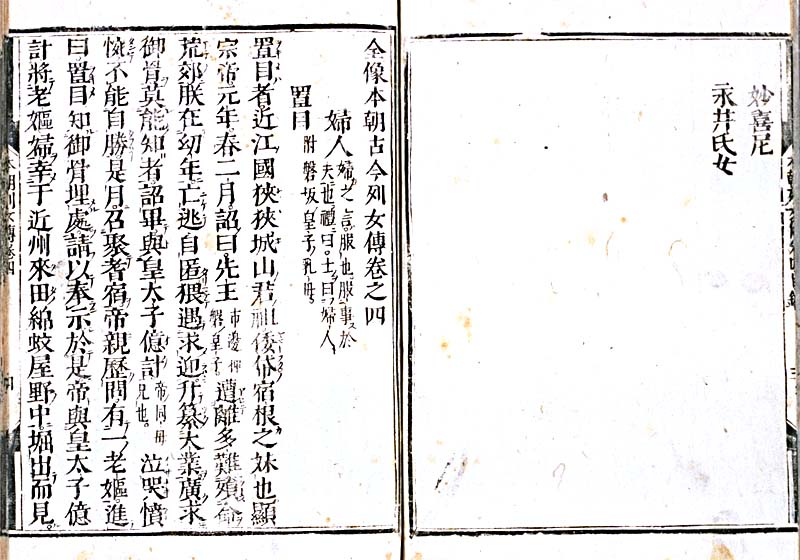 妙喜尼
永井氏女
全像本朝古今列女傳卷之四
婦人 婦之言服也服事於夫也禮曰士曰婦人
置目 附磐坂皇子乳母
置目者近江國狹狹城山君祖倭帒宿根之妹也顯
宗帝元年春二月詔曰先王 市邊押磐皇子 遭離多難殞命
荒郊朕在幼年亡逃自匿猥遇求迎升纂大業廣求
御骨莫能知者詔畢與皇太子億計 帝同母兄也 泣哭憤
惋不能自勝是月召聚耆宿帝親歷問有一老嫗進
曰置目知御骨埋處請以奉示於是帝與皇太子億
計將老嫗婦幸于近州來田綿蚊屋野中堀出而見